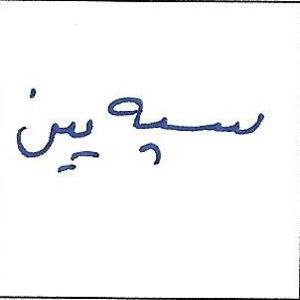 سپه یین